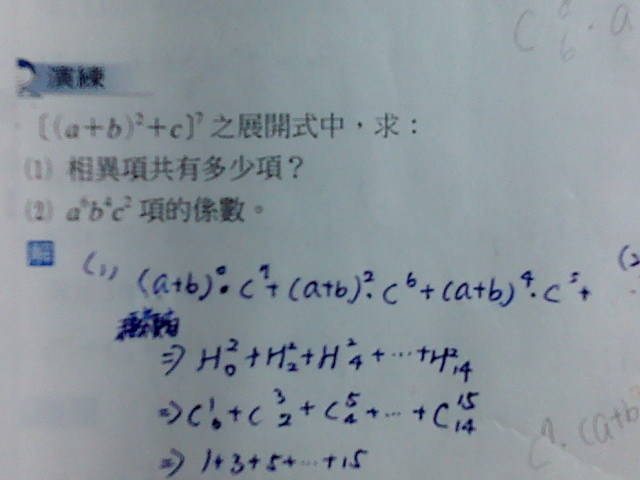 演練
[(a+b)²+c]⁷ 之展開式中，求：
(1) 相異項共有多少項？
(2) a⁶b⁴c² 項的係數。
解 (1) (a+b)⁰·c⁷+(a+b)²·c⁶+(a+b)⁴·c⁵+
⇒ H²₀+H²₂+H²₄+⋯+H²₁₄
⇒ C¹₀+C³₂+C⁵₄+⋯+C¹⁵₁₄
⇒ 1+3+5+⋯+15